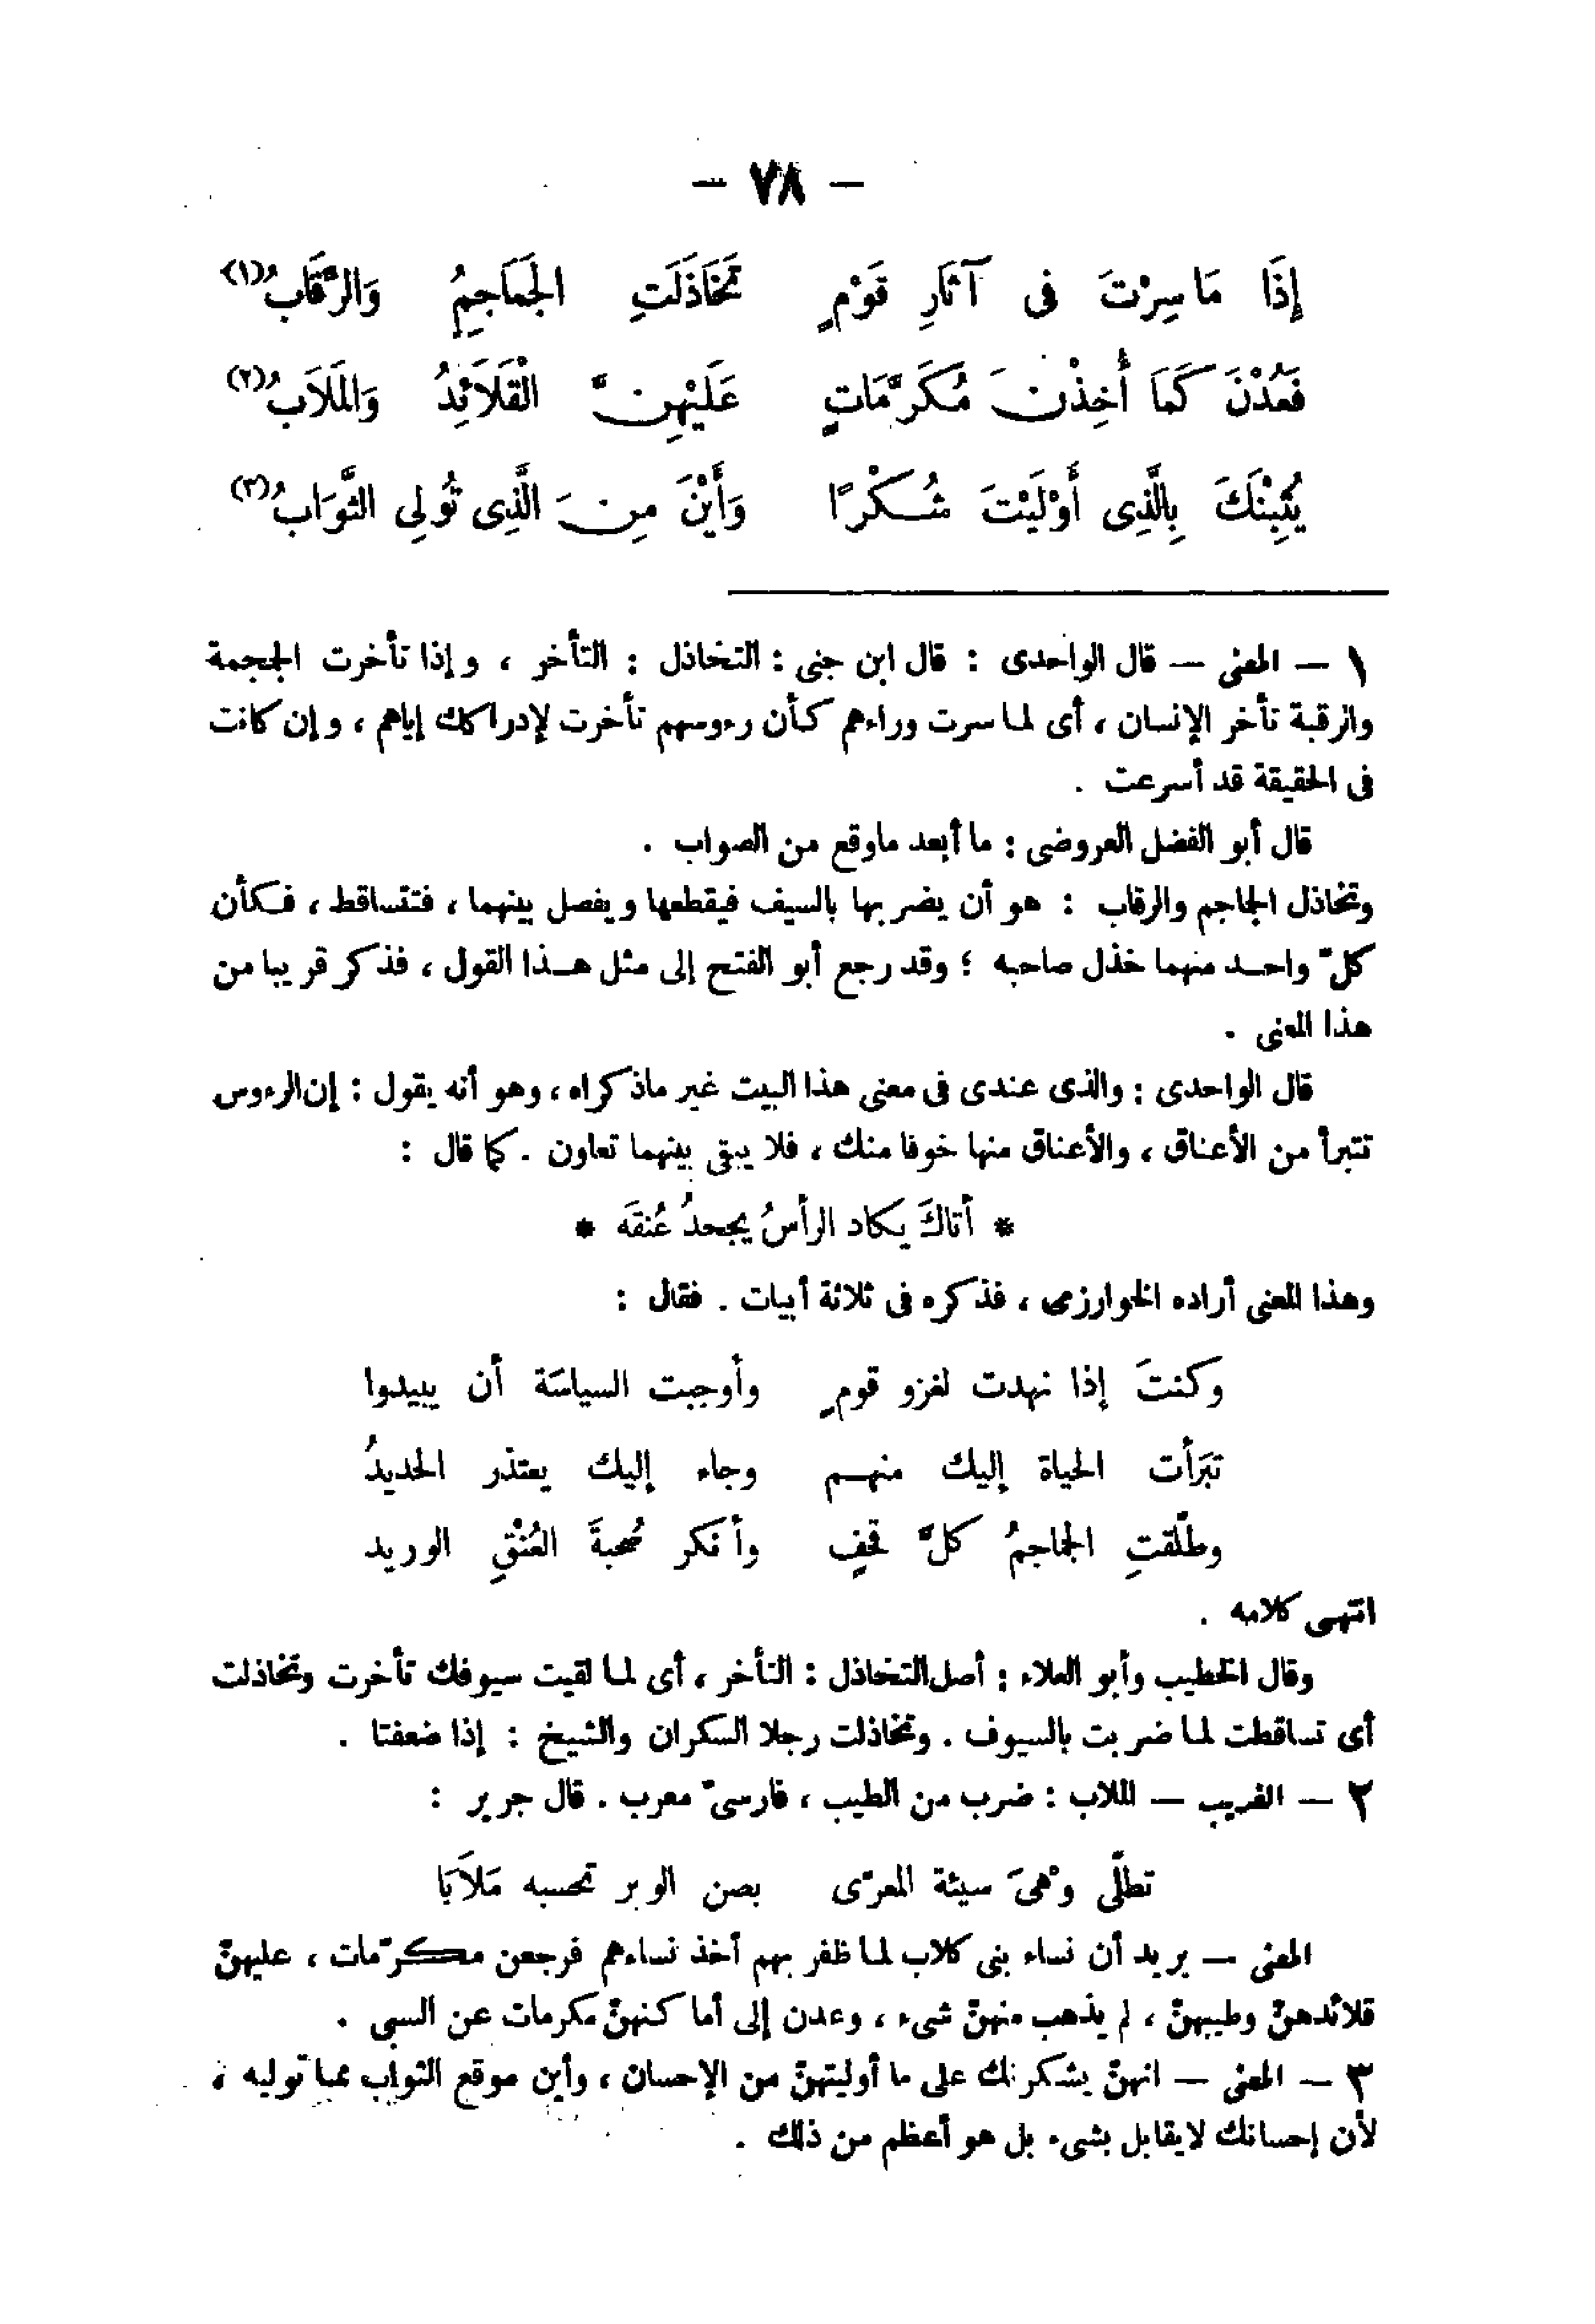 — ٧٨ —
إِذَا مَا سِرْتَ فى آثَارِ قَوْمٍ تَخَاذَلَتِ الجَمَاجِمُ وَالرِّقَابُ (١)
فَعُدْنَ كَمَا أُخِذْنَ مُكَرَّمَاتٍ عَلَيْهِنَّ الْقَلَائِدُ وَالمَلَابُ (٢)
يُثِبْنَكَ بِالَّذِى أَوْلَيْتَ شُكْرًا وَأَيْنَ مِنَ الَّذِى تُولِى الثَّوَابُ (٣)
١ — المعنى — قال الواحدى : قال ابن جنى : التخاذل : التأخر ، وإذا تأخرت الجمجمة
والرقبة تأخر الإنسان ، أى لما سرت وراءهم كأن رءوسهم تأخرت لإدراكك إياهم ، وإن كانت
فى الحقيقة قد أسرعت .
قال أبو الفضل العروضى : ما أبعد ماوقع من الصواب .
وتخاذل الجماجم والرقاب : هو أن يضربها بالسيف فيقطعها ويفصل بينهما ، فتتساقط ، فكأن
كلّ واحد منهما خذل صاحبه ؛ وقد رجع أبو الفتح إلى مثل هذا القول ، فذكر قريبا من
هذا المعنى .
قال الواحدى : والذى عندى فى معنى هذا البيت غير ماذكراه ، وهو أنه يقول : إن الرءوس
تتبرأ من الأعناق ، والأعناق منها خوفا منك ، فلا يبقى بينهما تعاون . كما قال :
* أتاكَ يكاد الرأسُ يجحدُ عُنقَه *
وهذا المعنى أراده الخوارزمى ، فذكره فى ثلاثة أبيات . فقال :
وكنتَ إذا نهدت لغزو قومٍ وأوجبت السياسَة أن يبيدوا
تبَرأت الحياة إليك منهم وجاء إليك يعتذر الحديدُ
وطلّقتِ الجماجمُ كلَّ قحفٍ وأنكر صُحبةَ العُنْقِ الوريد
انتهى كلامه .
وقال الخطيب وأبو العلاء : أصل التخاذل : التأخر ، أى لما لقيت سيوفك تأخرت وتخاذلت
أى تساقطت لما ضربت بالسيوف . وتخاذلت رجلا السكران والشيخ : إذا ضعفتا .
٢ — الغريب — الملاب : ضرب من الطيب ، فارسىّ معرب . قال جرير :
تطلّى وهْىَ سيئة المعرّى بصن الوبر تحسبه مَلاَبَا
المعنى — يريد أن نساء بنى كلاب لما ظفر بهم أخذ نساءهم فرجعن مكرّمات ، عليهنّ
قلائدهنّ وطيبهنّ ، لم يذهب منهنّ شىء ، وعدن إلى أماكنهنّ مكرمات عن السبى .
٣ — المعنى — انهنّ يشكرنك على ما أوليتهنّ من الإحسان ، وأين موقع الثواب مما توليه ،
لأن إحسانك لايقابل بشىء بل هو أعظم من ذلك .